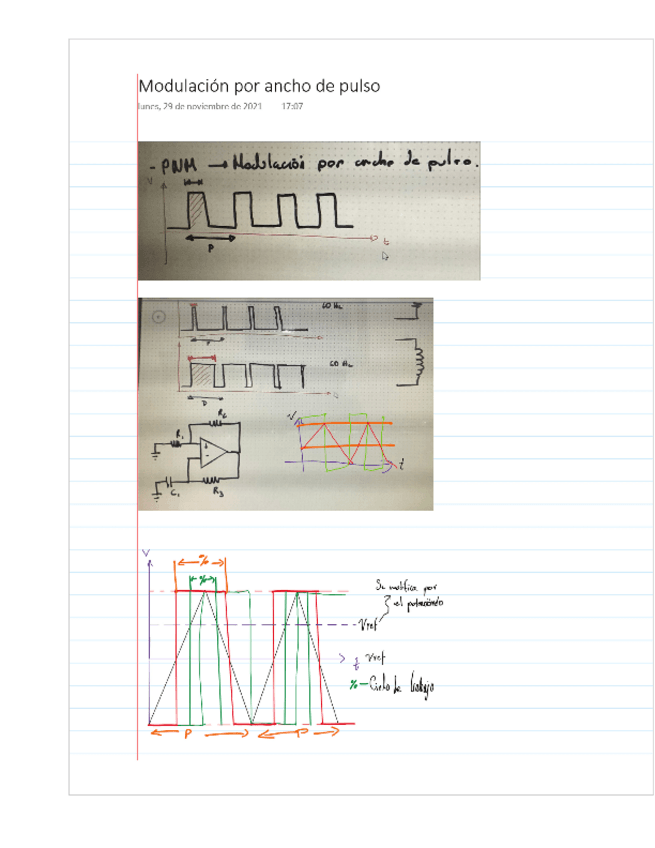 Modulación por ancho de pulso
lunes, 29 de noviembre de 2021 17:07
- PWM → Modulación por ancho de pulso.
V
t
P
60 Hz
P
60 Hz
P
R2
R1
V
t
C1
R3
V
%
%
Se modifica por
el potenciómetro
- Vref
Vref
% - Ciclo de trabajo
P
P